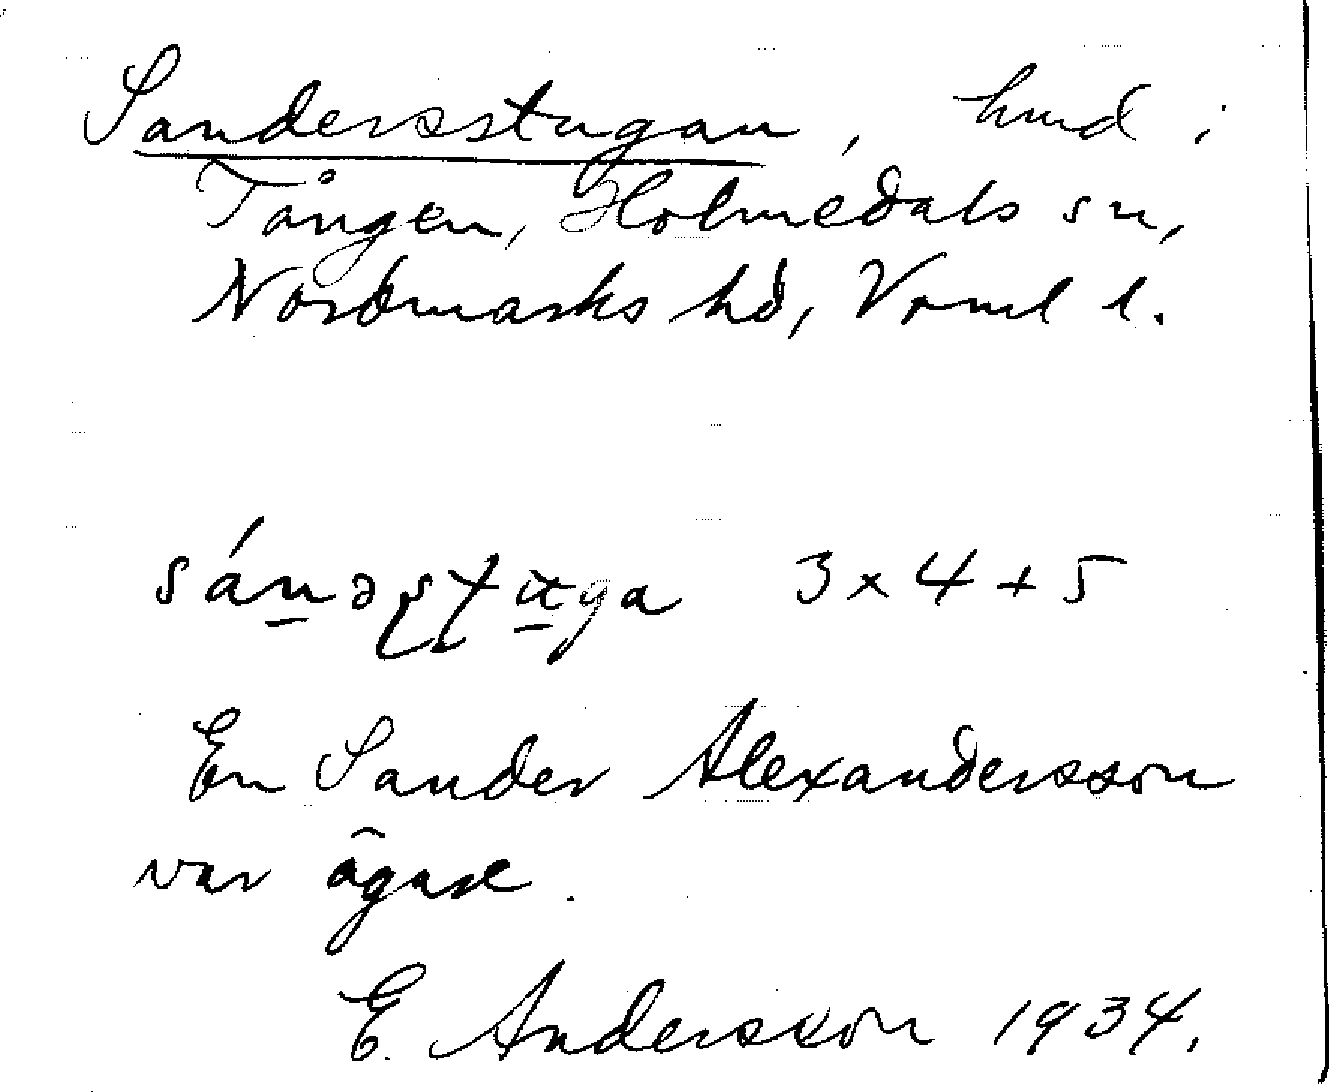 Sandersstugan, hmd i
Tången, Holmedals sn,
Nordmarks hd, Vrml l.
3 x 4 + 5
En Sander Alexandersson
var ägare.
E. Andersson 1934.